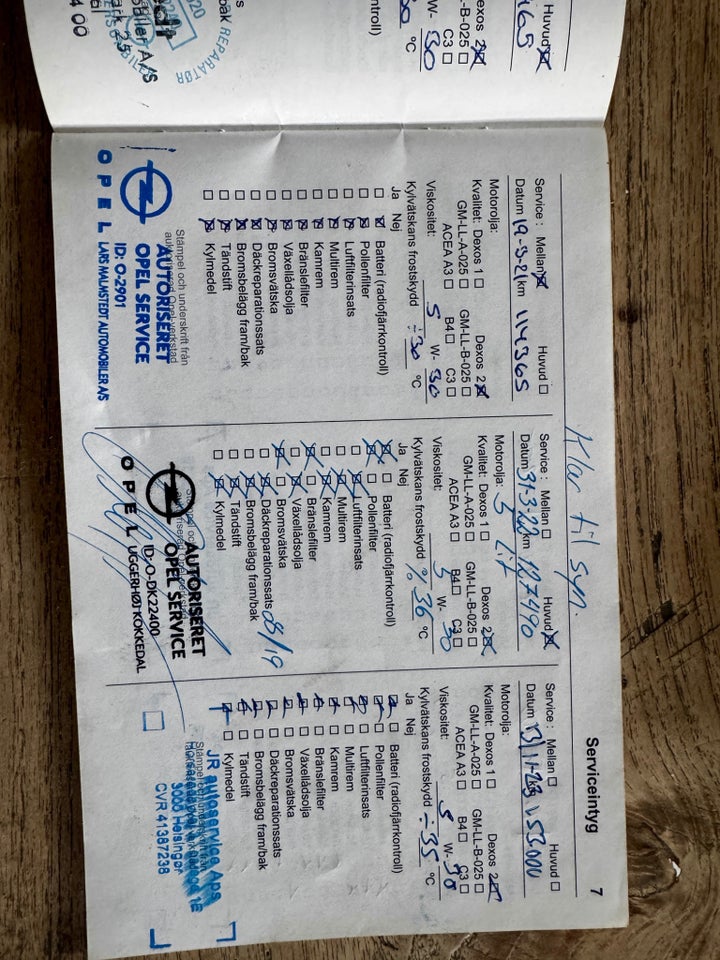 Serviceintyg 7
Klar til syn.
Service : Mellan Huvud
Datum 19-3-21 km 114365
Motorolja:
Kvalitet: Dexos 1 Dexos 2
GM-LL-A-025 GM-LL-B-025
ACEA A3 B4 C3
Viskositet: 5 W- 30
Kylvätskans frostskydd ÷30 °C
Ja Nej
Batteri (radiofjärrkontroll)
Pollenfilter
Luftfilterinsats
Multirem
Kamrem
Bränslefilter
Växellådsolja
Bromsvätska
Däckreparationssats
Bromsbelägg fram/bak
Tändstift
Kylmedel
Stämpel och underskrift från
AUTORISERET
OPEL SERVICE
ID: O-2901
OPEL LARS MALMSTEDT AUTOMOBILER A/S
Service : Mellan Huvud
Datum 31-3-22 km 127490
Motorolja: 5 Lit
Kvalitet: Dexos 1 Dexos 2
GM-LL-A-025 GM-LL-B-025
ACEA A3 B4 C3
Viskositet: 5 W- 30
Kylvätskans frostskydd % 36 °C
Ja Nej
Batteri (radiofjärrkontroll)
Pollenfilter
Luftfilterinsats
Multirem
Kamrem
Bränslefilter
Växellådsolja
Bromsvätska
Däckreparationssats 08/19
Bromsbelägg fram/bak
Tändstift
Kylmedel
AUTORISERET
OPEL SERVICE
ID: O-DK22400
OPEL UGGERHØJ KOKKEDAL
Service : Mellan Huvud
Datum km 153000
Motorolja:
Kvalitet: Dexos 1 Dexos 2
GM-LL-A-025 GM-LL-B-025
ACEA A3 B4 C3
Viskositet: 5 W- 30
Kylvätskans frostskydd ÷35 °C
Ja Nej
Batteri (radiofjärrkontroll)
Pollenfilter
Luftfilterinsats
Multirem
Kamrem
Bränslefilter
Växellådsolja
Bromsvätska
Däckreparationssats
Bromsbelägg fram/bak
Tändstift
Kylmedel
Stämpel och underskrift från
JR autoservice Aps
3000 Helsingør
CVR 41387238
Huvud
Dexos 2
GM-LL-B-025
C3
W- 30
°C
REPARATØR